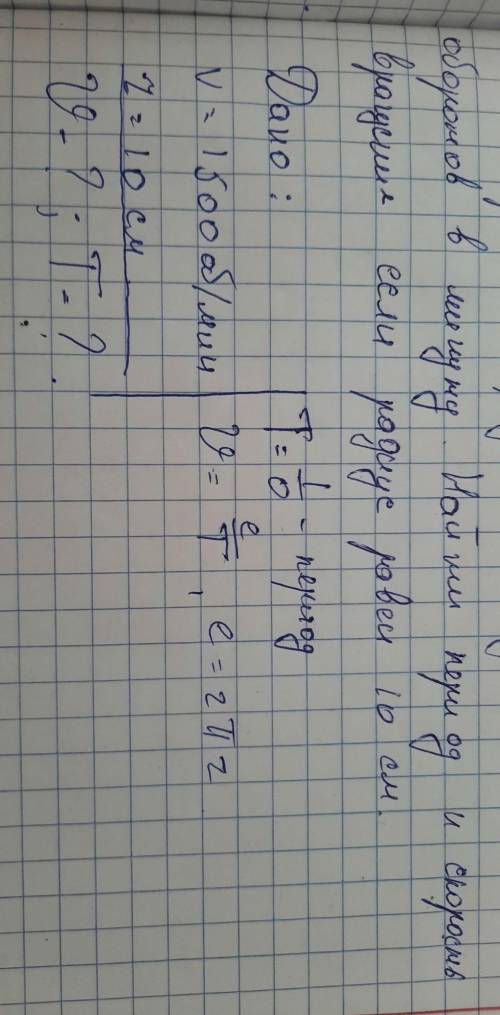 оборотов в минуту. Найти период и скорость
вращения если радиус равен 10 см.
Дано:
ν = 1500 об/мин
r = 10 см
υ - ? ; T = ?
T = 1/υ - период
υ = l/T, l = 2πr